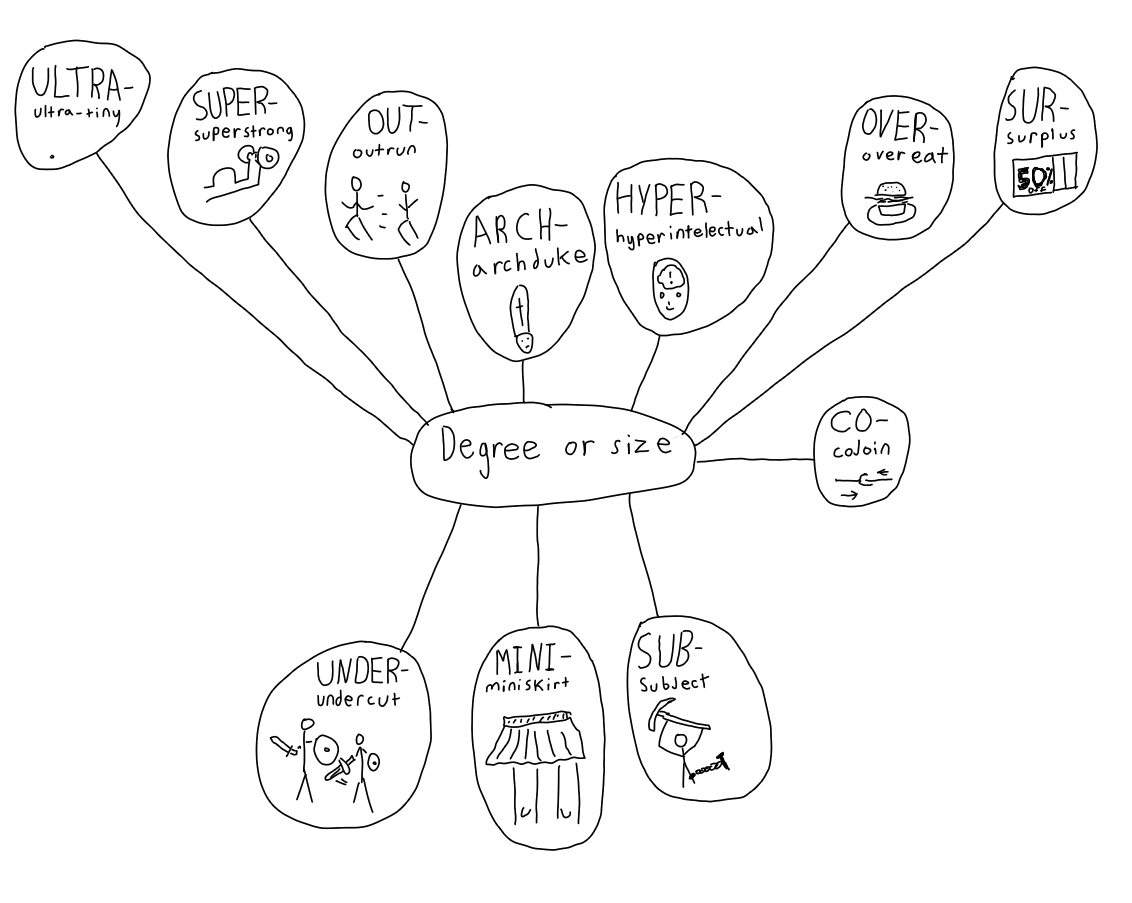 ULTRA-
ultra-tiny
SUPER-
superstrong
OUT-
outrun
ARCH-
archduke
HYPER-
hyperintelectual
OVER-
overeat
SUR-
surplus
50%
OFF
Degree or size
CO-
cojoin
UNDER-
undercut
MINI-
miniskirt
SUB-
Subject